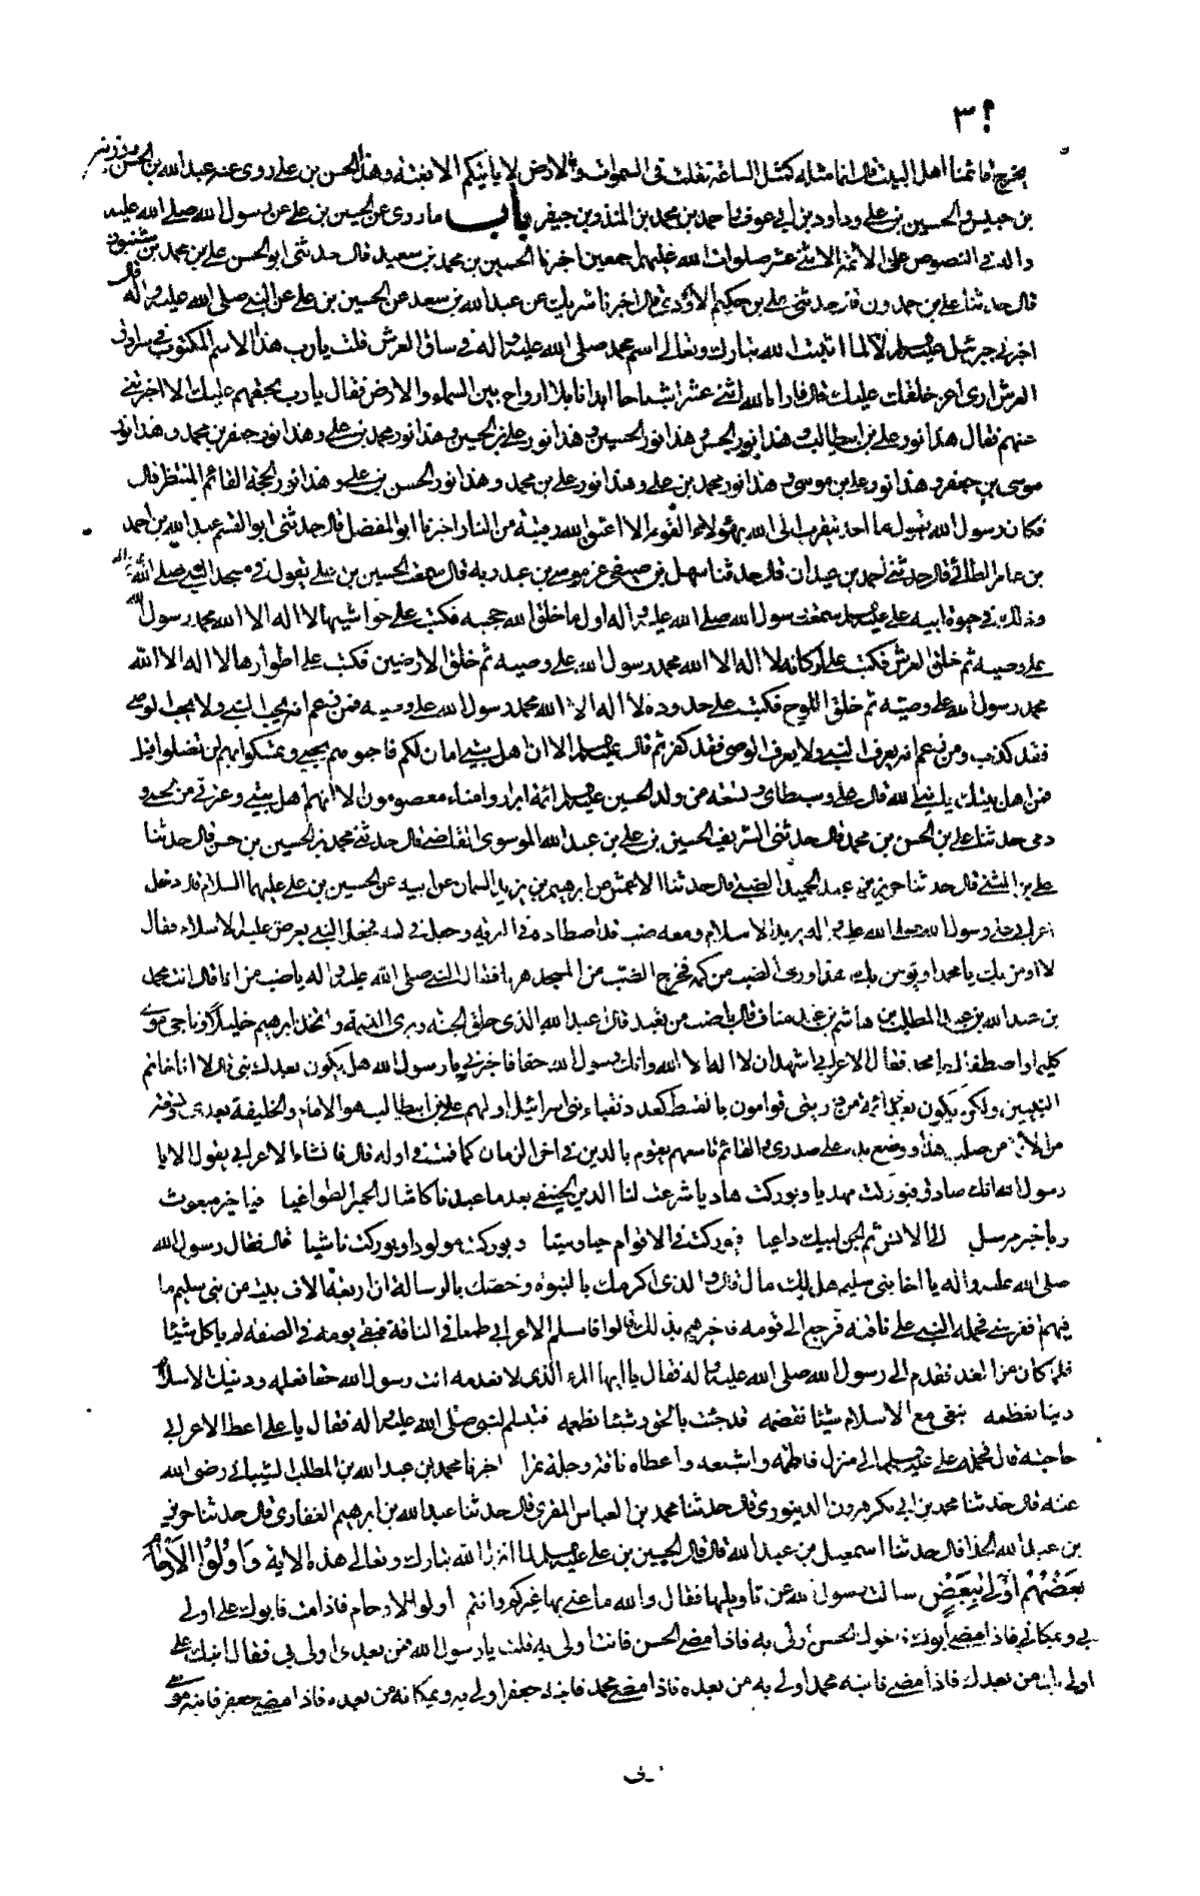 يخرج قائمنا اهل البيت قال انما مثله كمثل الساعة ثقلت في السموات والارض لا ياتيكم الا بغتة وهذا الحسن بن علي روى عنه عبدالله بن الحسن
والحسين بن علي وداود بن ابي عوف واحمد بن محمد بن المنذر بن جيفر باب ما روى عن الحسين بن علي عن رسول الله صلى الله عليه
واله في النصوص على الائمة الاثنى عشر صلوات الله عليهم اجمعين اخبرنا الحسين بن محمد بن سعيد قال حدثنى ابو الحسن علي بن محمد بن شنبوذ
قال حدثنا علي بن حمدون قال حدثنى علي بن حكيم الاودي قال اخبرنا شريك عن عبدالله بن سعد عن الحسين بن علي عن النبي صلى الله عليه واله قال
اخبرني جبرئيل لما اثبت الله تبارك وتعالى اسم محمد صلى الله عليه واله في ساق العرش قلت يا رب هذا الاسم المكتوب في سرادق
العرش ارى اعز خلقك عليك قال فاراه الله اثنى عشر اشباحا ابدانا بلا ارواح بين السماء والارض فقال يا رب بحقهم عليك الا اخبرتني
عنهم فقال هذا نور علي بن ابيطالب وهذا نور الحسن وهذا نور الحسين وهذا نور علي بن الحسين وهذا نور محمد بن علي وهذا نور جعفر بن محمد وهذا نور
موسى بن جعفر وهذا نور علي بن موسى وهذا نور محمد بن علي وهذا نور علي بن محمد وهذا نور الحسن بن علي وهذا نور الحجة القائم المنتظر قال
فكان رسول الله يقول ما احد يتقرب الى الله بهؤلاء القوم الا اعتق الله رقبته من النار اخبرنا ابو المفضل قال حدثنى ابو القسم عبدالله بن احمد
بن عامر الطائي قال حدثني احمد بن عبدان قال حدثنا سهل بن صيفي عن موسى بن عبد ربه قال سمعت الحسين بن علي يقول في مسجد النبي صلى الله
وذلك في حيوة ابيه علي سمعت رسول الله صلى الله عليه واله اول ما خلق الله حجبه فكتب على حواشيها لا اله الا الله محمد رسول الله
علي وصيه ثم خلق العرش فكتب على اركانه لا اله الا الله محمد رسول الله علي وصيه ثم خلق الارضين فكتب على اطوارها لا اله الا الله
محمد رسول الله علي وصيه ثم خلق اللوح فكتب على حدوده لا اله الا الله محمد رسول الله علي وصيه فمن زعم انه يحب النبي ولا يحب الوصي
فقد كذب ومن زعم انه يعرف النبي ولا يعرف الوصي فقد كفر ثم قال الا ان اهل بيتي امان لكم فاحبوهم بحبي وتمسكوا بهم لن تضلوا قيل
فمن اهل بيتك يا نبي الله قال علي وسبطاي وتسعة من ولد الحسين ائمة ابرار وامناء معصومون الا انهم اهل بيتي وعترتي من لحمي و
دمي حدثنا علي بن الحسن بن محمد قال حدثنى الشريف الحسين بن علي بن عبدالله الموسوي القاضي قال حدثني محمد بن الحسين بن حفص قال حدثنا
علي بن المثنى قال حدثنا جرير بن عبد الحميد الضبي قال حدثنا الاعمش عن ابرهيم بن يزيد السمان عن ابيه عن الحسين بن علي عليهما السلام قال دخل
اعرابي على رسول الله صلى الله عليه واله يريد الاسلام ومعه ضب قد اصطاده في البرية وجعله في كمه فجعل النبي يعرض عليه الاسلام فقال
لا اومن بك يا محمد او يومن بك هذا ورمى الضب من كمه فخرج الضب من المسجد هربا فقال النبي صلى الله عليه واله يا ضب من انا قال انت محمد
بن عبدالله بن عبد المطلب بن هاشم بن عبد مناف قال يا ضب من تعبد قال اعبد الله الذي خلق الجنة وبرى النسمة واتخذ ابرهيم خليلا وناجى موسى
كليما واصطفاك يا محمد فقال الاعرابي اشهد ان لا اله الا الله وانك رسول الله حقا فاخبرني يا رسول الله هل يكون بعدك نبي قال لا انا خاتم
النبيين ولكن يكون بعدي ائمة من ذريتي قوامون بالقسط كعدد نقباء بني اسرائيل اولهم علي بن ابيطالب هو الامام والخليفة بعدي وتسعة
من الائمة من صلب هذا ووضع يده على صدري والقائم تاسعهم يقوم بالدين في اخر الزمان كما قمت في اوله قال فانشاء الاعرابي يقول الا يا
رسول الله انك صادق فبوركت مهديا وبوركت هاديا شرعت لنا الدين الحنيفي بعد ما عبدنا كامثال الحمير الطواغيا فيا خير مبعوث
ويا خير مرسل الى الانس ثم الجن لبيك داعيا فبوركت في الاقوام حيا وميتا وبوركت مولودا وبوركت ناشيا قال فقال رسول الله
صلى الله عليه واله يا اخا بني سليم هل لك مال قال والذي اكرمك بالنبوة وخصك بالرسالة ان اربعة الاف بيت من بني سليم ما
فيهم افقر مني فحمله النبي على ناقته فرجع الى قومه فاخبرهم بذلك قالوا فاسلم الاعرابي طمعا في الناقة فبقي يومه في الصفة لم ياكل شيئا
فلما كان من الغد تقدم الى رسول الله صلى الله عليه واله فقال يا ايها المرء الذي لا نعدمه انت رسول الله حقا نعلمه ودينك الاسلام
دينا نعظمه نبغي مع الاسلام شيئا نقضمه قد جئت بالحق وشيئا نطعمه فتبسم النبي صلى الله عليه واله فقال يا علي اعط الاعرابي
حاجته قال فحمله علي الى منزل فاطمة واشبعه واعطاه ناقة وجلة تمرا اخبرنا محمد بن عبدالله بن المطلب الشيباني رضى الله
عنه قال حدثنا محمد بن ابي بكر هرون الدينوري قال حدثنا محمد بن العباس المقري قال حدثنا عبدالله بن ابرهيم الغفاري قال حدثنا حريز
بن عبدالله الحذا قال حدثنا اسمعيل بن عبدالله قال قال الحسين بن علي لما انزل الله تبارك وتعالى هذه الاية وَاُولُوا الْاَرْحَامِ
بَعْضُهُمْ اَوْلَى بِبَعْضٍ سالت رسول الله عن تاويلها فقال والله ما عنى بها غيركم وانتم اولوا الارحام فاذا مت فابوك علي اولى
بي وبمكاني فاذا مضى ابوك فاخوك الحسن اولى به فاذا مضى الحسن فانت اولى به قلت يا رسول الله فمن بعدى اولى بي فقال ابنك علي
اولى بك من بعدك فاذا مضى فابنه محمد اولى به من بعده فاذا مضى محمد فابنه جعفر اولى به وبمكانه من بعده فاذا مضى جعفر فابنه موسى